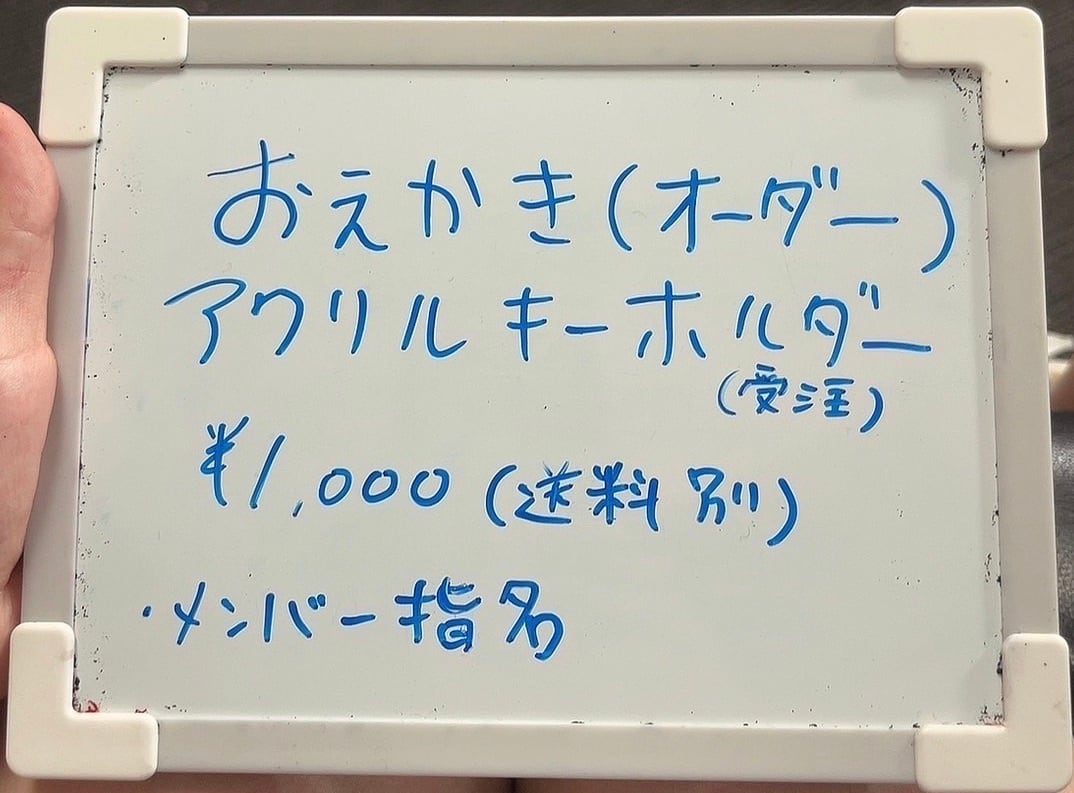 おえかき(オーダー)
アクリルキーホルダー
(受注)
¥1,000(送料別)
・メンバー指名